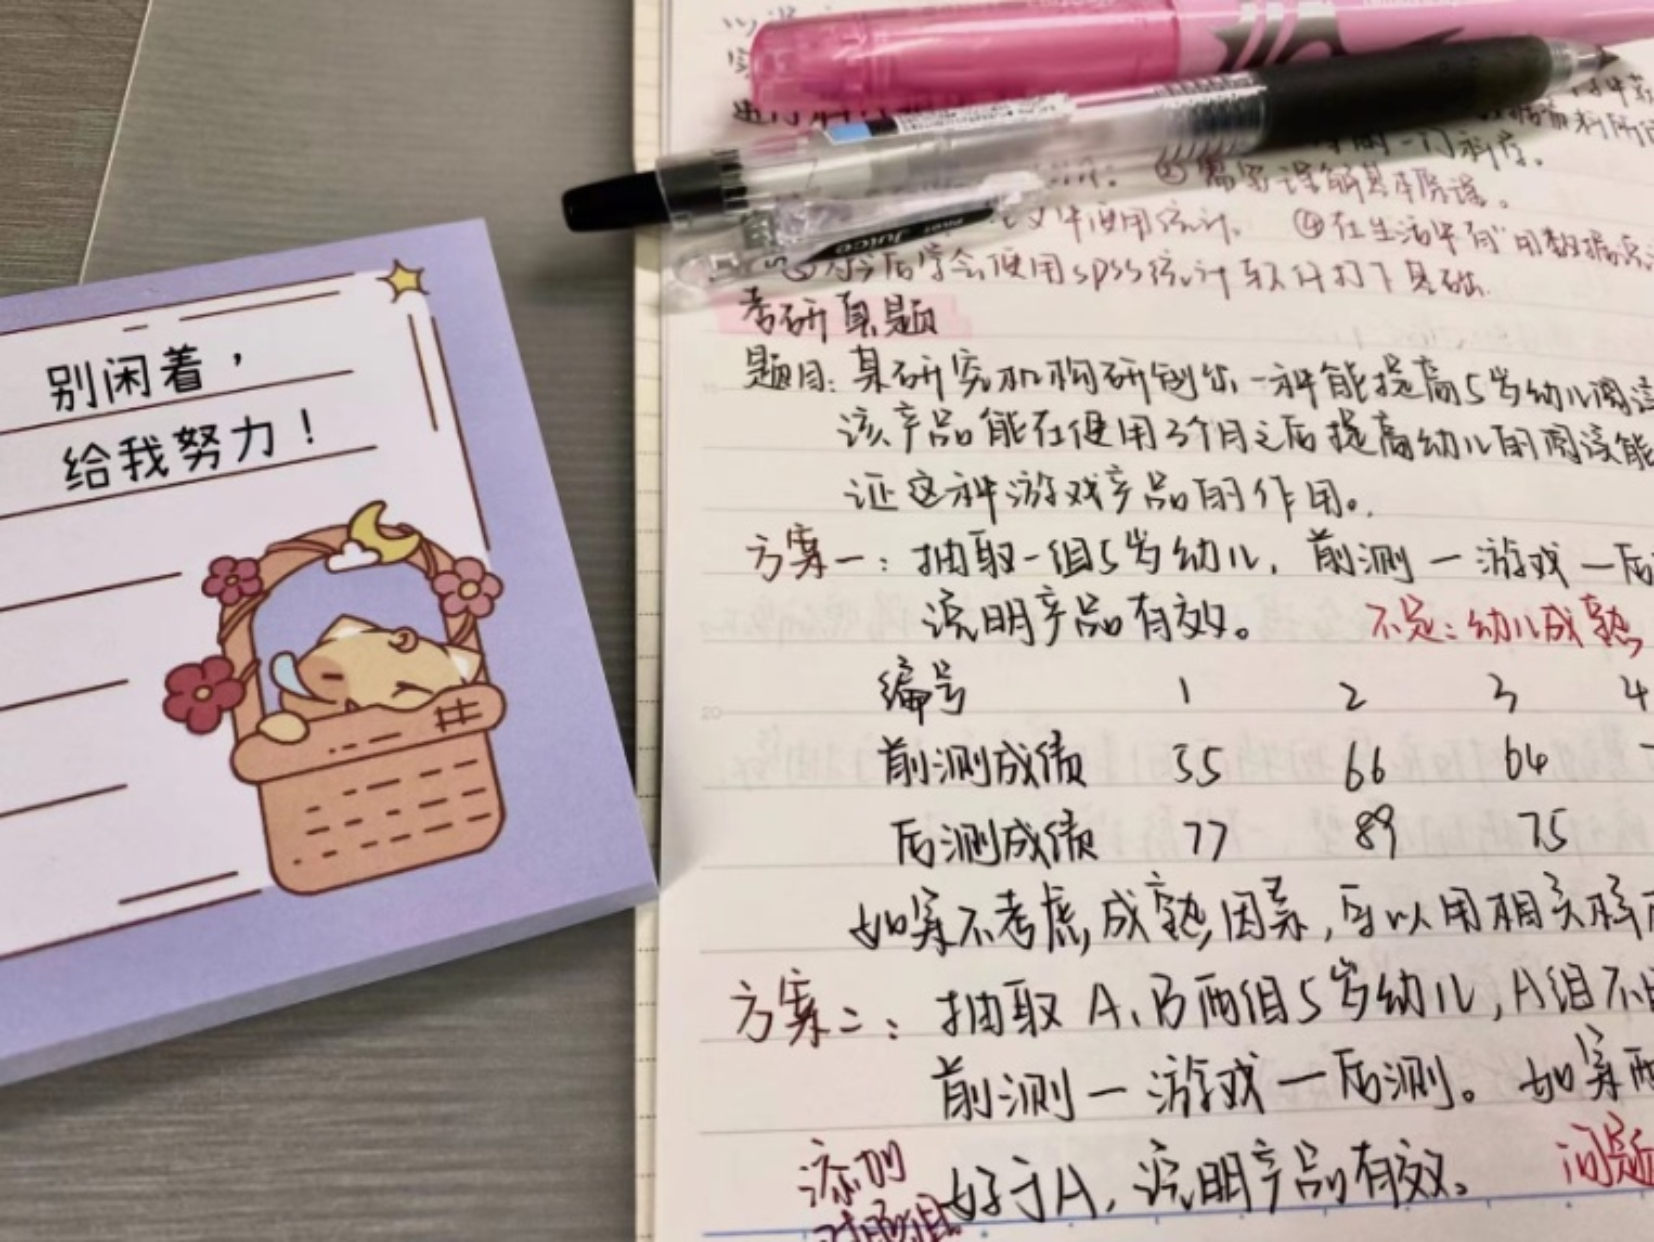 别闲着，
给我努力！
Juice
一门科学。
②需要理解基本原理。
使用统计。 ④在生活中有"用数据说
今后学会使用spss统计软件打下基础.
考研真题
题目：某研究机构研创出一种能提高5岁幼儿阅读
该产品能在使用3个月之后提高幼儿的阅读能
证这种游戏产品的作用。
方案一：抽取一组5岁幼儿，前测—游戏—后
说明产品有效。 不足：幼儿成熟
编号 1 2 3 4
前测成绩 55 66 64
后测成绩 77 89 75
如果不考虑成熟因素，可以用相关样
方案二：抽取A、B两组5岁幼儿，A组不
前测—游戏—后测。 如果两
添加 好于A，说明产品有效。 问题
对照组